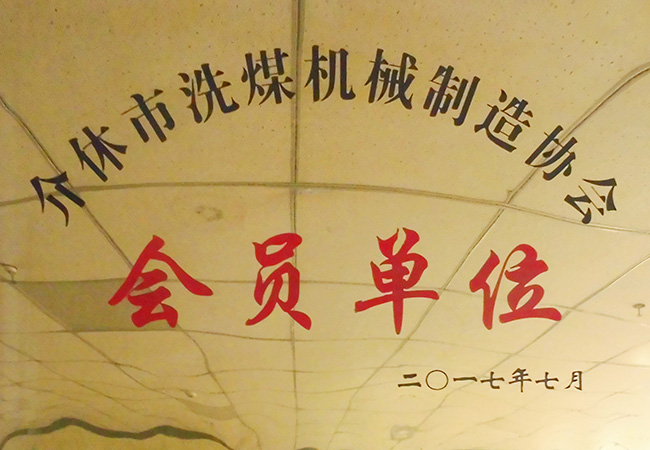 介休市洗煤机械制造协会
会员单位
二〇一七年七月